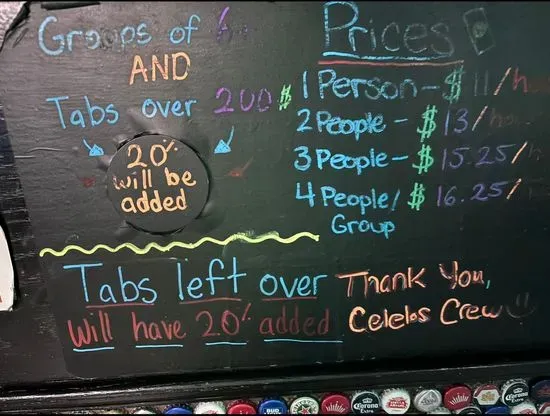 Groups of 6
AND
Tabs over 200$
20%
will be
added
Prices
1 Person - $11/
2 People - $13/
3 People - $15.25/
4 People/ $16.25/
Group
Tabs left over
will have 20% added
Thank You,
Celebs Crew
Corona
Extra
Corona
Extra